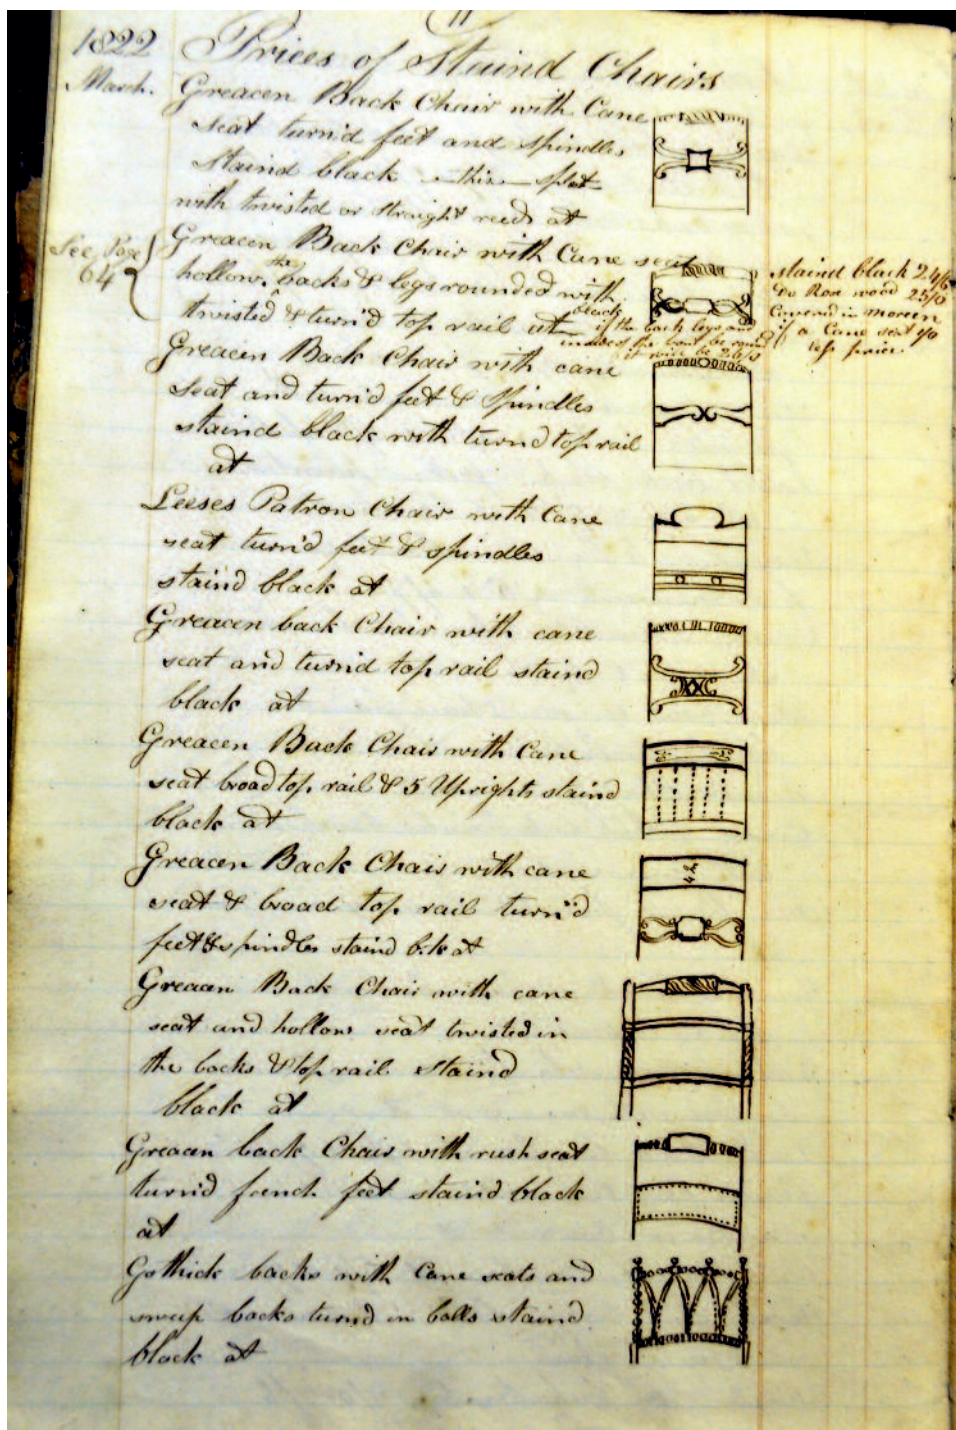 11
1822 Prices of Staind Chairs
March. Greacen Back Chair with Cane
seat turn'd feet and spindles
Staind black this splat
with twisted or straight reeds at
See Page 64
Greacen Back Chair with Cane seat
hollow, the backs & legs rounded with
twisted & turn'd top rail at
black if the back legs and
it will be 26/3
staind black 24/6
Do Rose wood 25/0
Covered in moreen
if a Cane seat
less price.
Greacen Back Chair with cane
seat and turn'd feet & Spindles
staind black with turnd top rail
at
Leeses Patron Chair with Cane
seat turn'd feet & spindles
staind black at
Greacen back Chair with cane
seat and turn'd top rail staind
black at
Greacen Back Chair with Cane
seat broad top rail & 5 Uprights staind
black at
Greacen Back Chair with cane
seat & broad top rail turn'd
feet & spindles staind blk at
Greacen Back Chair with cane
seat and hollow seat twisted in
the backs & top rail staind
black at
Greacen back Chair with rush seat
turn'd french feet staind black
at
Gothick backs with Cane seats and
sweep backs turnd in balls staind
black at